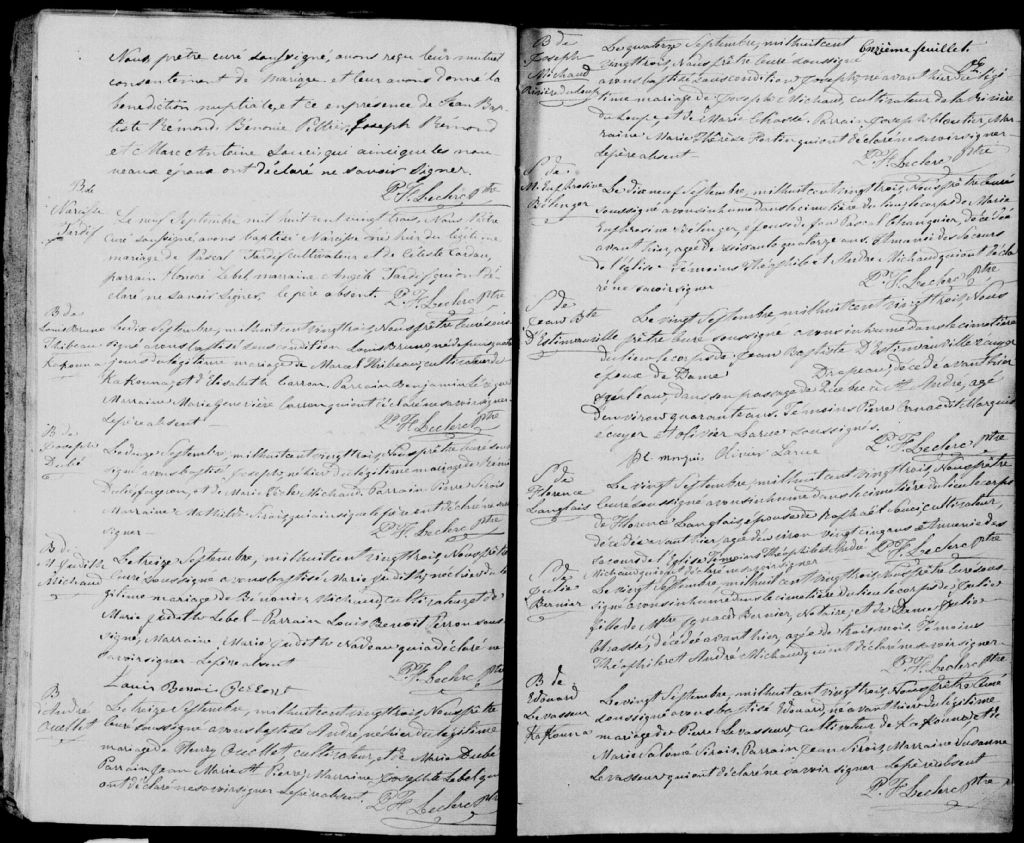 Nous prêtre curé soussigné, avons reçu leur mutuel
consentement de mariage et leur avons donné la
bénédiction nuptiale, et ce en presence de Jean Bap-
tiste Rémond, Bénonie Peltier, Joseph Rémond
et Marc Antoine Soucis, qui ainsi que les nou-
veaux epoux ont déclaré ne savoir signer.
P. F. Leclerc Ptre
B. de
Narcisse
Tardif
Le neuf Septembre mil huit cent vingt trois, Nous Prêtre
Curé soussigné, avons baptisé Narcisse né hier du légitime
mariage de Pascal Tardif cultivateur et de Celeste
parrain Honoré Lebel marraine Angèle Tardif qui ont dé-
claré ne Savoir Signer, le père absent. P. F. Leclerc Ptre
B de
Louis Bruno
Thibeau
Kakouna
Le dix Septembre, mil huit cent vingt trois, Nous prêtre Curé sous-
signé avons baptisé sous condition Louis Bruno né depuis quatre
jours du légitime mariage de Marcel Thibeau, cultivateur de
Kakouna, et d'Elisabeth Carron. Parrain Benjamin
Marraine Marie Geneviève Carron qui ont déclaré ne savoir signer
Le père absent —
P. F. Leclerc Ptre
B. de
Joseph
Dubé
Le douze Septembre, mil huit cent vingt trois, Nous prêtre curé sous-
signé avons baptisé Joseph, né hier du légitime mariage de Rémi
Dubé, forgeron, et de Marie Michaud. Parrain Pierre Sirois
Marraine Mathilde Sirois qui ainsi que le père ont déclaré ne savoir
signer —
P. F. Leclerc Ptre
B. de
M. Judithe
Michaud
Le treize Septembre, mil huit cent vingt trois, Nous prêtre
Curé Soussigné avons baptisé Marie Judith, née hier du lé-
gitime mariage de Bénonier Michaud, cultivateur, et de
Marie Judith Lebel - Parrain Louis Benoit Perron sous-
signé, Marraine, Marie Judith Nadeau qui a déclaré ne
savoir signer. Le père absent
P. F. Leclerc Ptre
Louis Benoi Perront
B
d'André
Ouellet
Le treize Septembre, mil huit cent vingt trois, Nous prêtre
Curé soussigné avons baptisé André, né hier du légitime
mariage de Henry Ouellet cultivateur, et de Marie Dubé
Parrain Jean Marie St Pierre, Marraine Josephte Lebel qui
ont déclaré ne savoir signer. Le père absent. P. F. Leclerc Ptre
Onzième feuillet.
B de
Joseph
Michaud
Rivière du Loup
Le quatorze Septembre, mil huit cent
vingt trois, Nous Prêtre Curé soussigné
avons baptisé sous condition Joseph, né avant hier du légi-
time mariage de Joseph Michaud, cultivateur de la Rivière
du Loup, et de Marie Chassé. Parrain Joseph Cloutier, Mar-
raine Marie Thérèse Fortin qui ont déclaré ne savoir signer —
Le père absent
P. F. Leclerc Ptre
S de
M. Euphrosine
Bélenger
Le dix neuf Septembre, mil huit cent vingt trois, Nous Prêtre Curé
soussigné avons inhumé dans le cimetière du lieu le corps de Marie
Euphrosine Bélenger, épouse de feu Pascal décédée
avant hier, agée de soixante quatorze ans. Et munie des Secours
de l'Eglise. Témoins Théophile et André Michaud qui ont décla-
ré ne savoir signer
P. F. Leclerc Ptre
S de
Jean Bte
D'Estimauville
Le vingt Septembre, mil huit cent vingt trois, Nous
prêtre Curé soussigné avons inhumé dans le cimetière
du lieu le corps de Jean Baptiste D'Estimauville écuyer
époux de Dame Drapeau, décédé avant hier
sur l'eau, dans son passage de Québec à St André, agé
d'environ quarante ans. Témoins Pierre Marquis
écuyer et Olivier Larue soussignés.
P. F. Leclerc Ptre
Pl. marquis Olivier Larue
S. de
Florence
Langlais
Le vingt Septembre, mil huit cent vingt trois, Nous Prêtre
Curé soussigné avons inhumé dans le cimetière du lieu le corps
de Florence Langlais épouse de Raphaël Soucis cultivateur,
décédée avant hier, agée d'environ vingt cinq ans et munie des
secours de l'Eglise. Témoins Théophile et André
Michaud qui ont déclaré ne savoir signer
P. F. Leclerc Ptre
S. de
Julie
Bernier
Le vingt Septembre, mil huit cent vingt trois, Nous Prêtre Curé sous-
signé avons inhumé dans le cimetière du lieu le corps de Julie
fille de Mtre Ignace Bernier, Notaire, et de Dame Julie
Chassé, décédée avant hier, agée de trois mois. Témoins
Théophile et André Michaud qui ont déclaré ne savoir signer
P. F. Leclerc Ptre
B de
Edouard
Levasseur
Kakouna
Le vingt Septembre, mil huit cent vingt trois, Nous prêtre Curé
soussigné avons baptisé Edouard, né avant hier du légitime
mariage de Pierre Levasseur, cultivateur de Kakouna et de
Marie Salomé Sirois. Parrain Jean Sirois, Marraine Susanne
Levasseur qui ont déclaré ne savoir signer. Le père absent
P. F. Leclerc Ptre